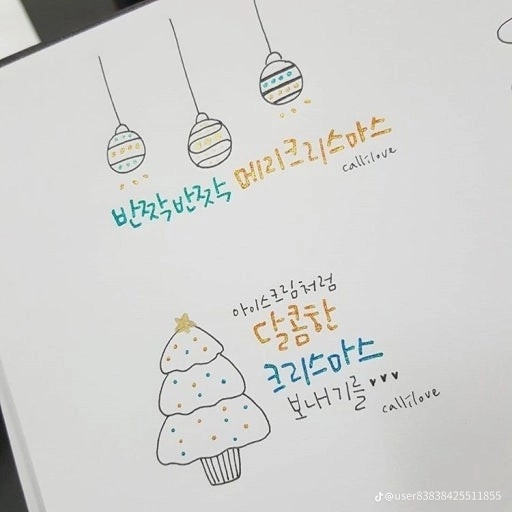 반짝반짝 메리크리스마스
callilove
아이스크림처럼
달콤한
크리스마스
보내기를 ♥♥♥
callilove
@user83838425511855